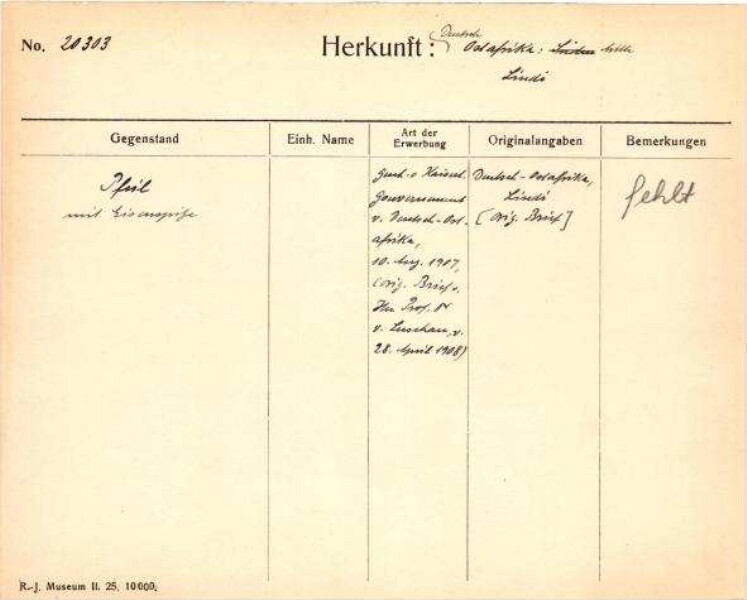 No. 20303
Herkunft: Deutsch
Ostafrika:
Lindi
Gegenstand Einh. Name Art der Erwerbung Originalangaben Bemerkungen
Pfeil
mit Eisenspitze
Kaiserl.
Gouvernement
v. Deutsch-Ost-
afrika,
10. Aug. 1907,
(orig. Brief v.
Hn Prof. Dr
v. Luschan, v.
28. April 1908)
Deutsch-Ostafrika,
Lindi
[orig. Brief]
fehlt
R.-J. Museum II. 25. 10000.